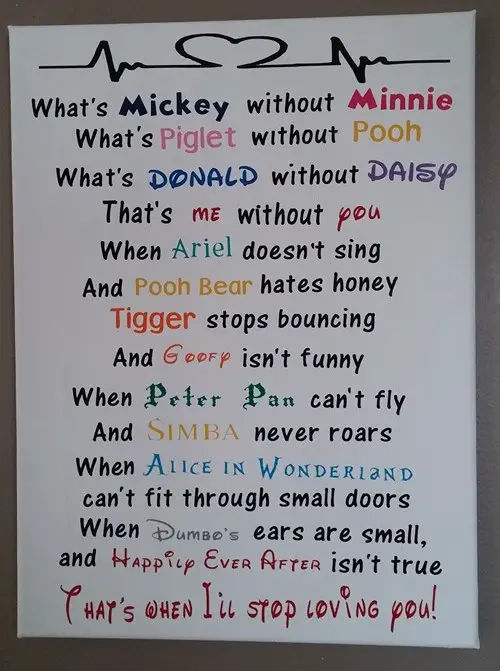 What's Mickey without Minnie
What's Piglet without Pooh
What's DONALD without DAISY
That's ME without you
When Ariel doesn't sing
And Pooh Bear hates honey
Tigger stops bouncing
And Goofy isn't funny
When Peter Pan can't fly
And SIMBA never roars
When ALICE IN WONDERLAND
can't fit through small doors
When Dumbo's ears are small,
and Happily Ever After isn't true
That's when I'll stop loving you!